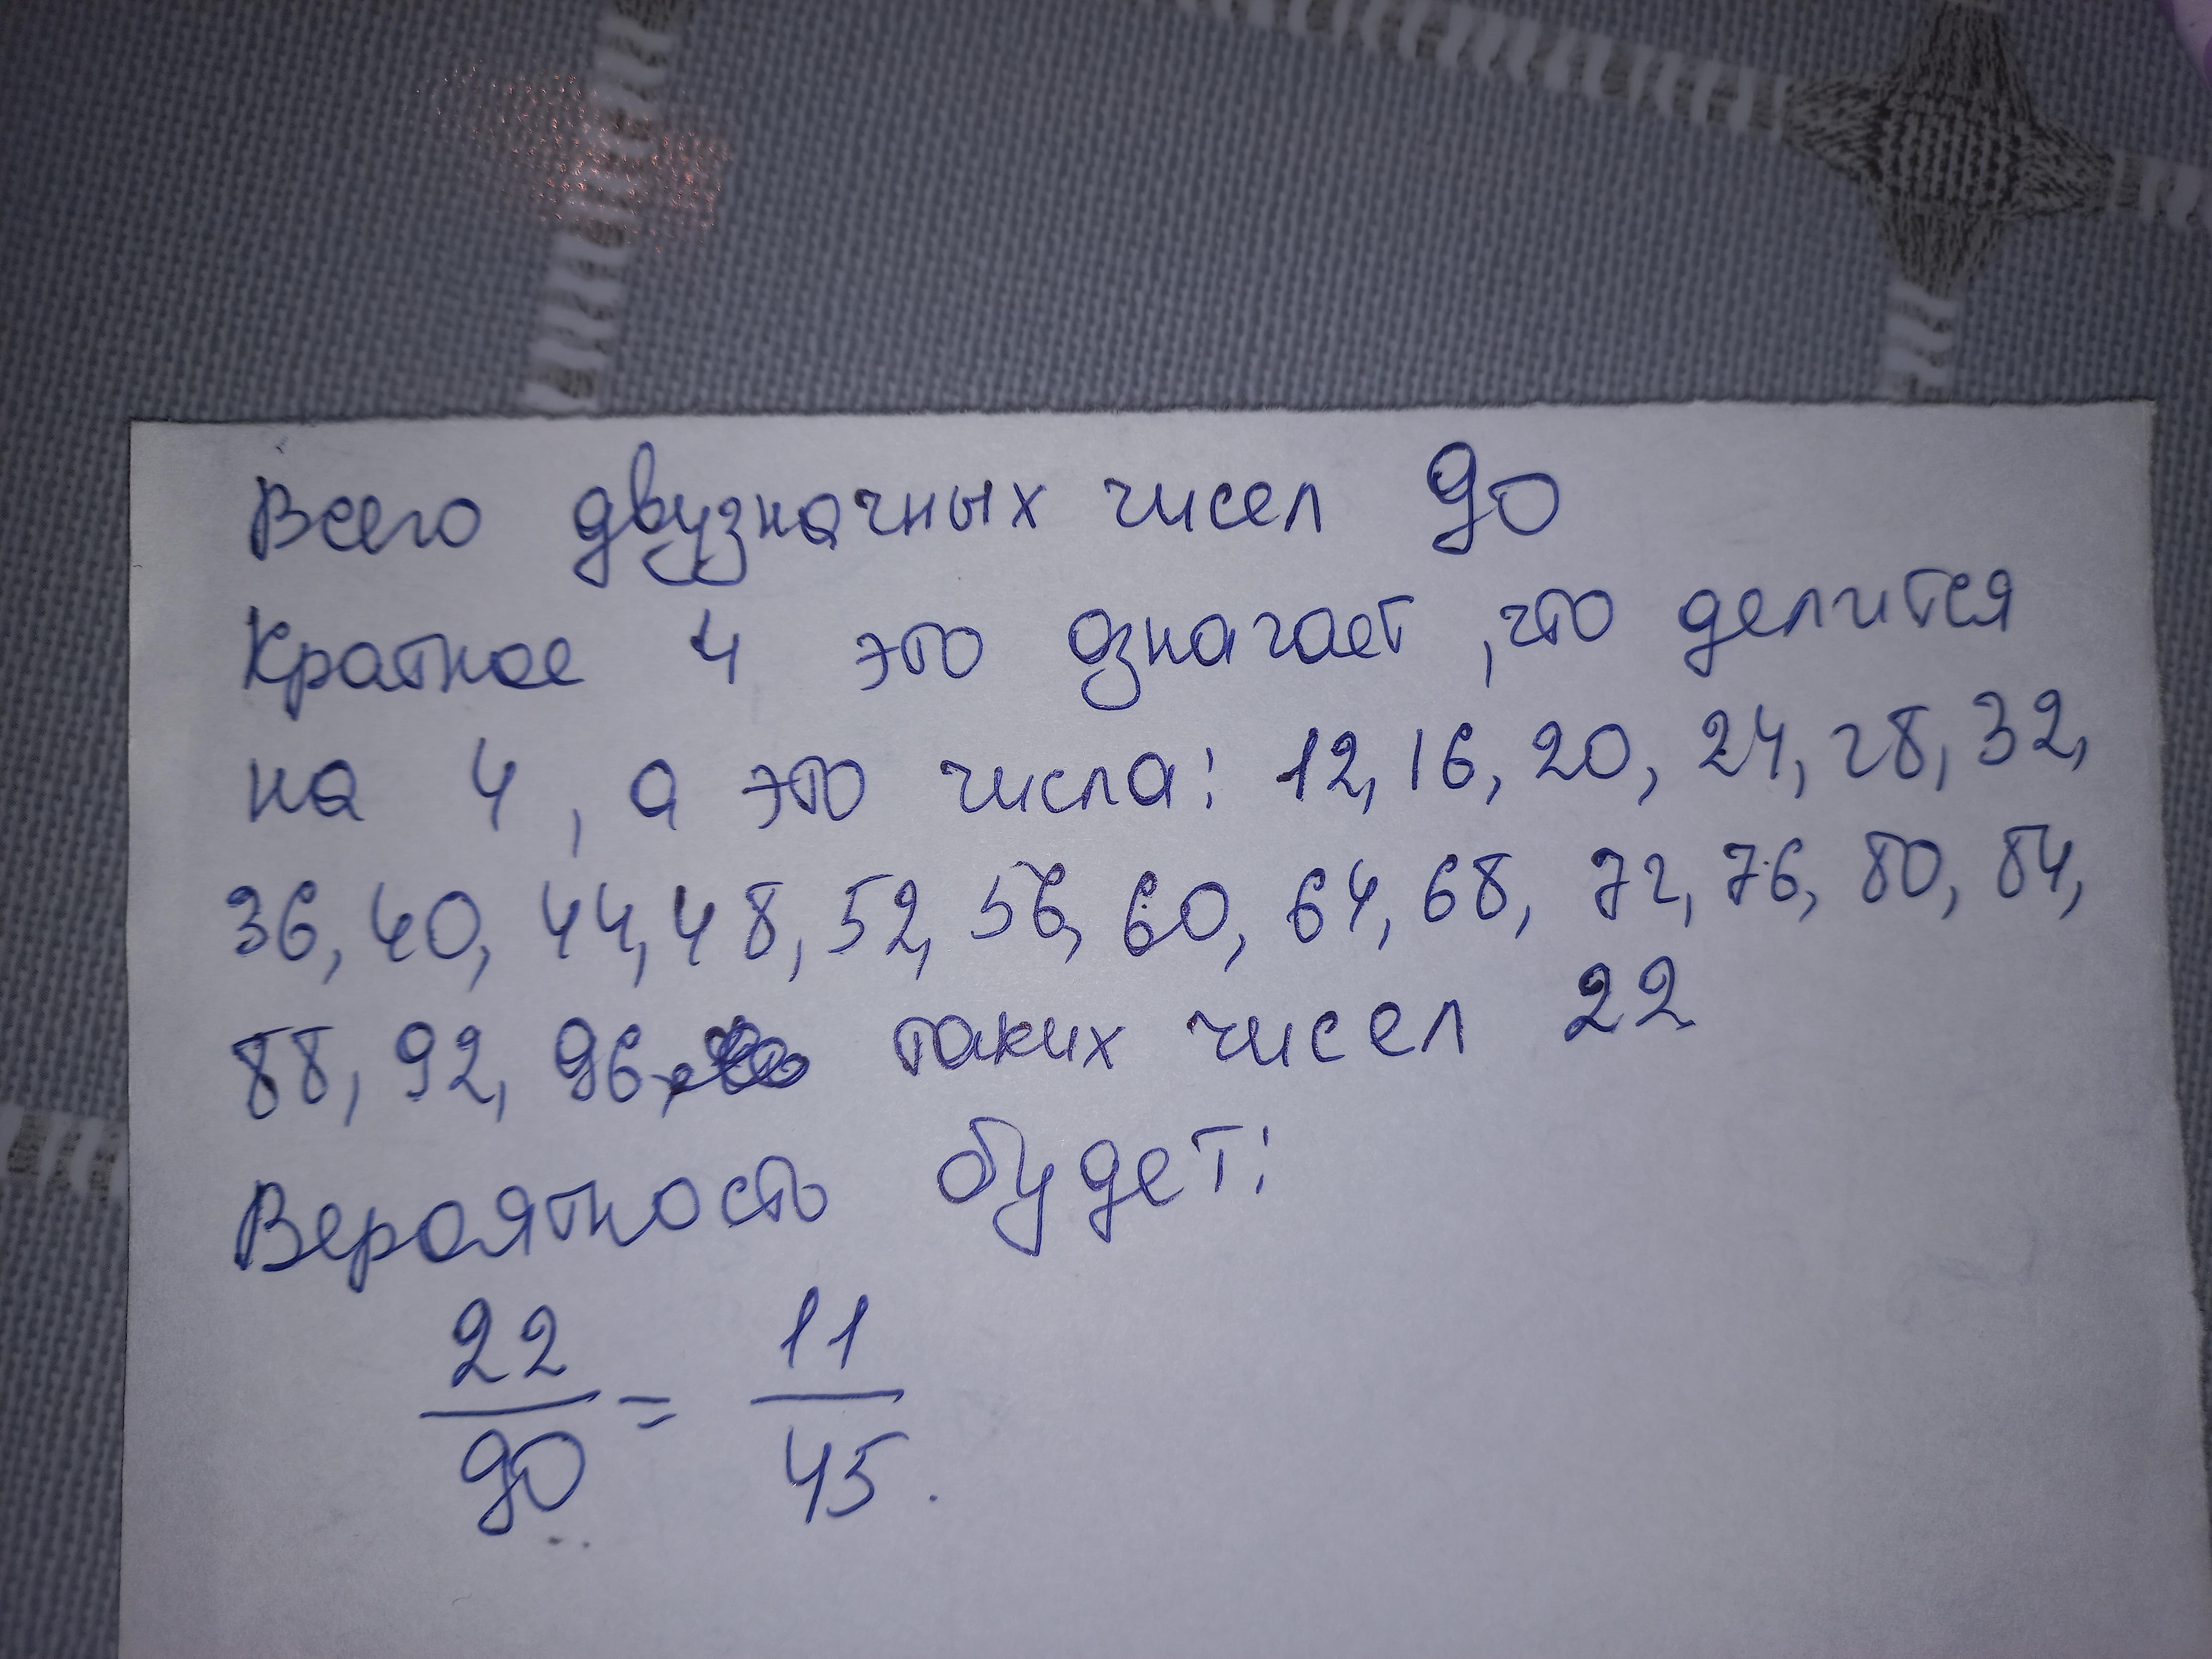 Всего двузначных чисел 90
Кратное 4 это означает, что делится
на 4, а это числа: 12, 16, 20, 24, 28, 32,
36, 40, 44, 48, 52, 56, 60, 64, 68, 72, 76, 80, 84,
88, 92, 96, таких чисел 22
Вероятность будет:
22/90 = 11/45.